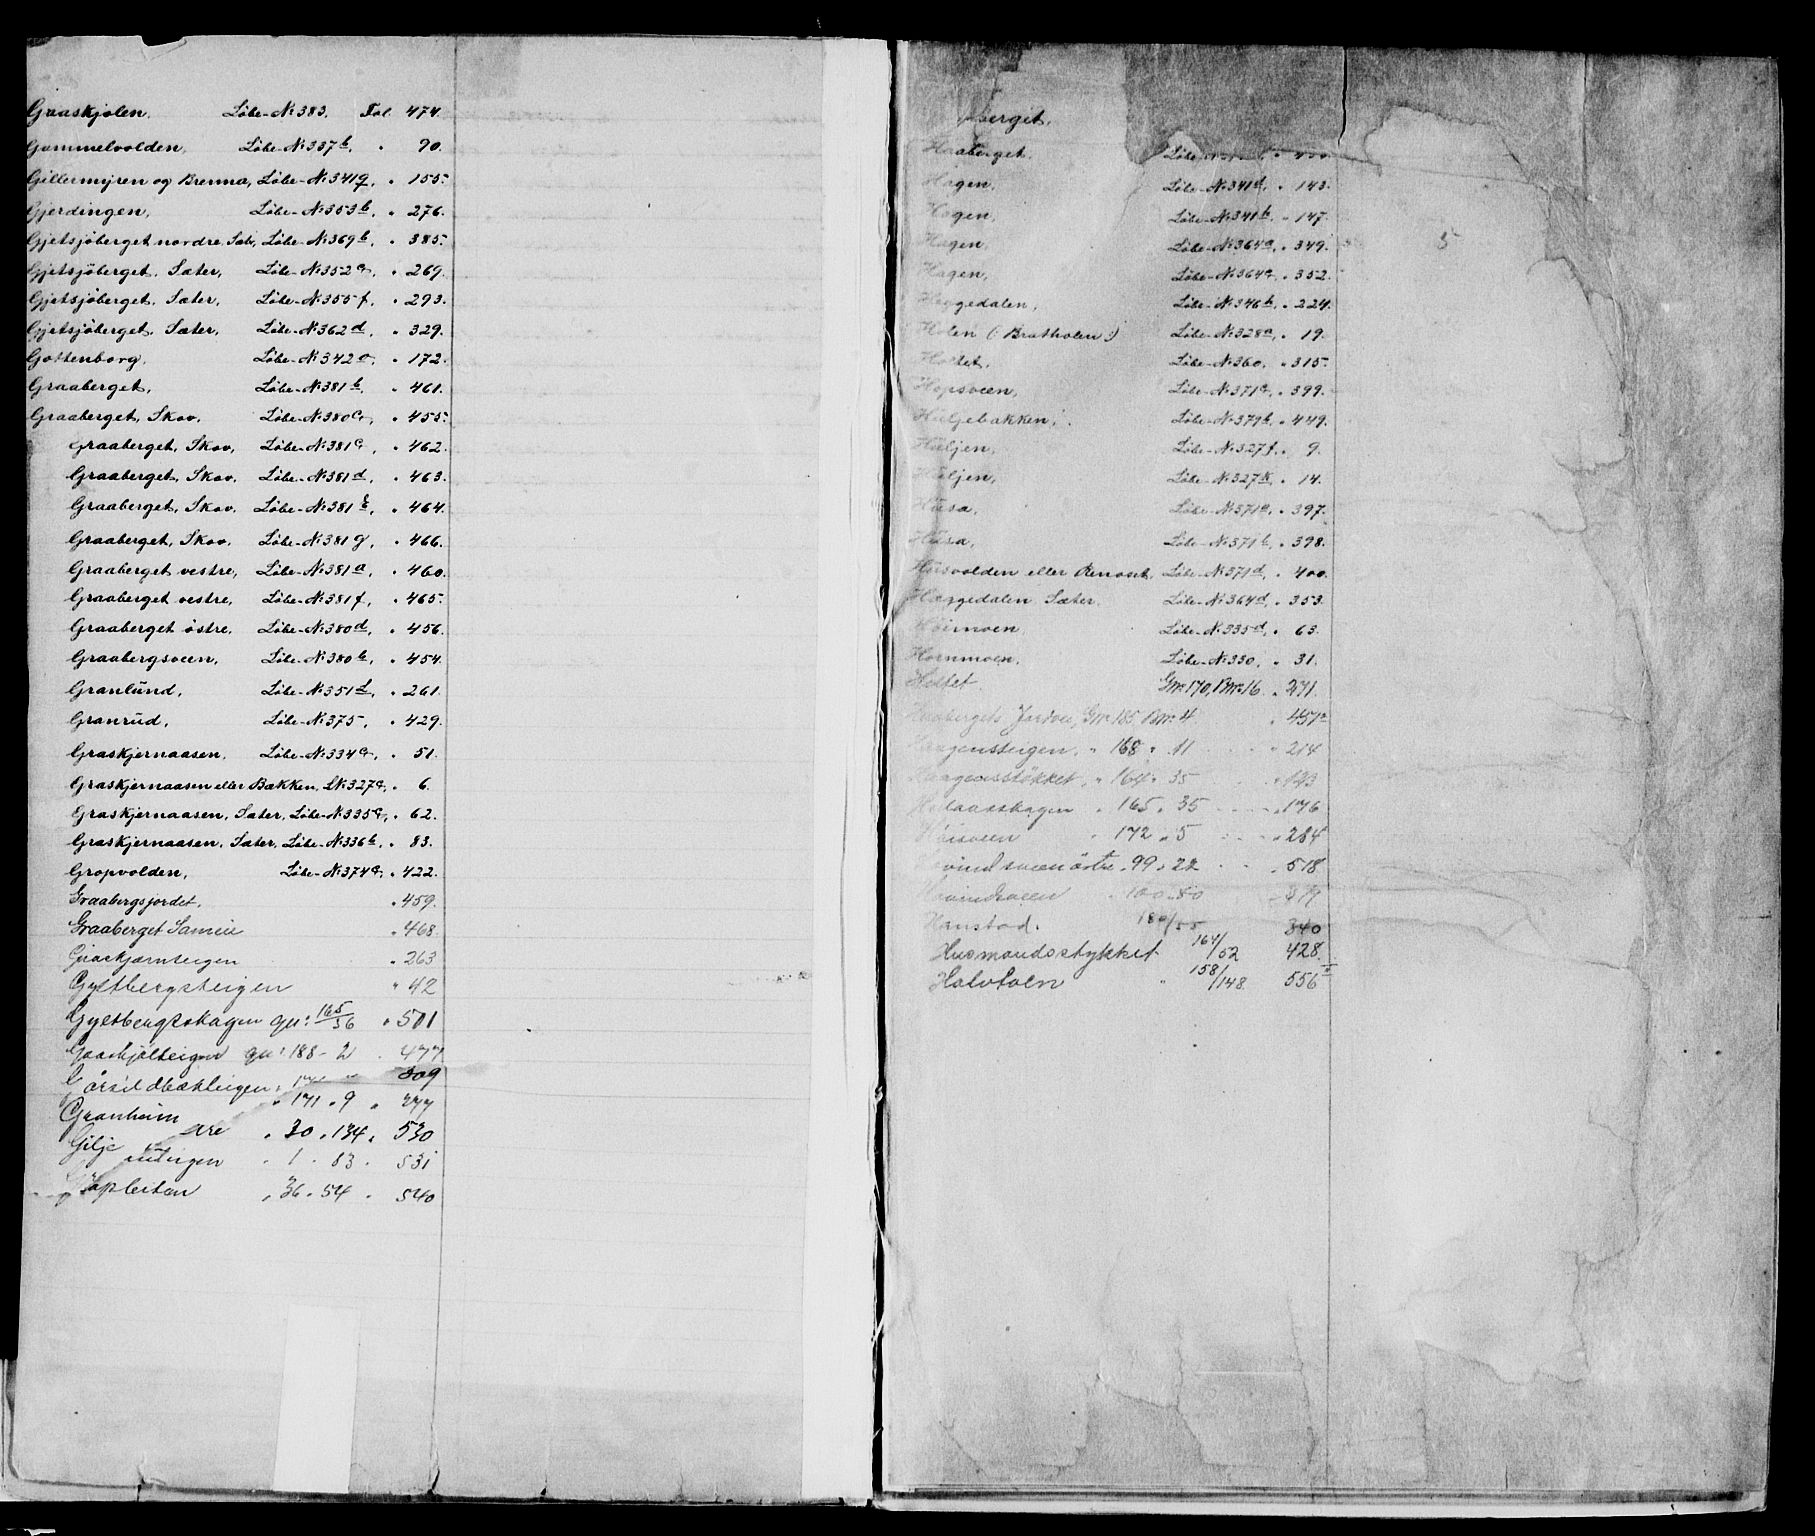 Graaskjolen, Löbe-No 383, Fol. 474.
Gammelvolden, Löbe-No 337 b, " 90.
Gillermyren og Brenna, Löbe-No 341 g, " 155.
Gjerdingen, Löbe-No 353 b, " 276.
Gjetsjöberget nordre, Sæt., Löbe-No 369 b, " 385.
Gjetsjöberget, Sæter, Löbe-No 352 a, " 269.
Gjetsjöberget, Sæter, Löbe-No 355 f, " 293.
Gjetsjöberget, Sæter, Löbe-No 362 d, " 329.
Gottenborg, Löbe-No 342 a, " 172.
Graaberget, Löbe-No 381 b, " 461.
Graaberget, Skov, Löbe-No 380 a, " 455.
Graaberget, Skov, Löbe-No 381 c, " 462.
Graaberget, Skov, Löbe-No 381 d, " 463.
Graaberget, Skov, Löbe-No 381 e, " 464.
Graaberget, Skov, Löbe-No 381 g, " 466.
Graaberget vestre, Löbe-No 381 a, " 460.
Graaberget vestre, Löbe-No 381 f, " 465.
Graaberget östre, Löbe-No 380 d, " 456.
Graabergsveen, Löbe-No 380 b, " 454.
Granlund, Löbe-No 351 d, " 261.
Granrud, Löbe-No 375, " 429.
Graskjernaasen, Löbe-No 334 a, " 51.
Graskjernaasen eller Bækken, L.No 327 c, " 6.
Graskjernaasen, Sæter, Löbe-No 335 c, " 62.
Graskjernaasen, Sæter, Löbe-No 336 b, " 83.
Gropvolden, Löbe-No 374 a, " 422.
Graabergsjordet, " 459.
Graaberget Sameie " 468.
Graskjærnteigen " 263
Gyltbergsteigen " 42
Gyltbergsskagen gn: 165/36 " 501
Graakjölteigen gn: 188 - 2 " 477
309
Granheim " 171 " 9 " 277
Gilje " 30 " 134 " 530
" 1 " 83 " 531
" 36 " 54 " 540
berget,
Haaberget,
Hagen, Löbe-No 341 d, " 143.
Hagen, Löbe-No 341 b, " 147.
Hagen, Löbe-No 364 a, " 349.
Hagen, Löbe-No 364 c, " 352.
Haggedalen, Löbe-No 346 b, " 224.
Holen (: Bratholen :) Löbe-No 328 a, " 19.
Holtet, Löbe-No 360, " 315.
Hopsveen, Löbe-No 371 c, " 399.
Huljebakken, Löbe-No 379 b, " 449.
Huljen, Löbe-No 327 f, " 9.
Huljen, Löbe-No 327 k, " 14.
Husa, Löbe-No 371 a, " 397.
Husa, Löbe-No 371 b, " 398.
Husvolden eller Renaset, Löbe-No 371 d, " 400.
Hæggedalen Sæter, Löbe-No 364 d, " 353.
Höimoen, Löbe-No 335 d, " 63.
Hornmoen, Löbe-No 330, " 31.
Holtet. Gno 170, Bno 16. " 271.
Haabergets Jordvei, Gno 185 Bno 4 " 457 a
Haagensteigen, " 168 " 11 " 214
Haagensstykket, " 164 " 35 " 143
Holaasskagen " 165 " 35 " 176
Höisveen " 172 " 5 " 284
Hovindsveen östre " 99 " 22 " 518
Hovindsveen " 100 " 80 " 479
Hanstad. 180/55 340
Husmandsstykket 164/52 428.
Halvfoten " 158/148 556 II